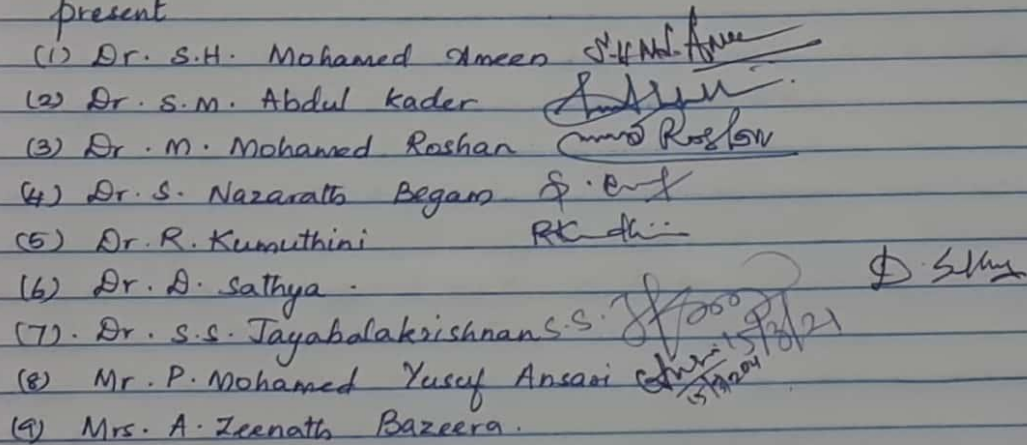 present
(1) Dr. S.H. Mohamed Ameen S.H.Md.Amee
(2) Dr. S.M. Abdul Kader
(3) Dr. M. Mohamed Roshan Roslow
(4) Dr. S. Nazarath Begam
(5) Dr. R. Kumuthini
(6) Dr. D. Sathya.
(7). Dr. S.S. Jayabalakrishnan S.S. 15/3/21
(8) Mr. P. Mohamed Yusuf Ansari
(9) Mrs. A. Zeenath Bazeera.